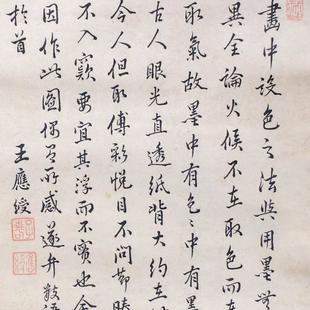 畫中設色之法與用墨無
異全論火候不在取色而在
取氣故墨中有色〻中有墨
古人眼光直透紙背大約在
今人但取傅彩悅目不問節腠
不入窾要宜其浮而不實也余
因作此圖偶有所感遂弁數語
於首
王應綬